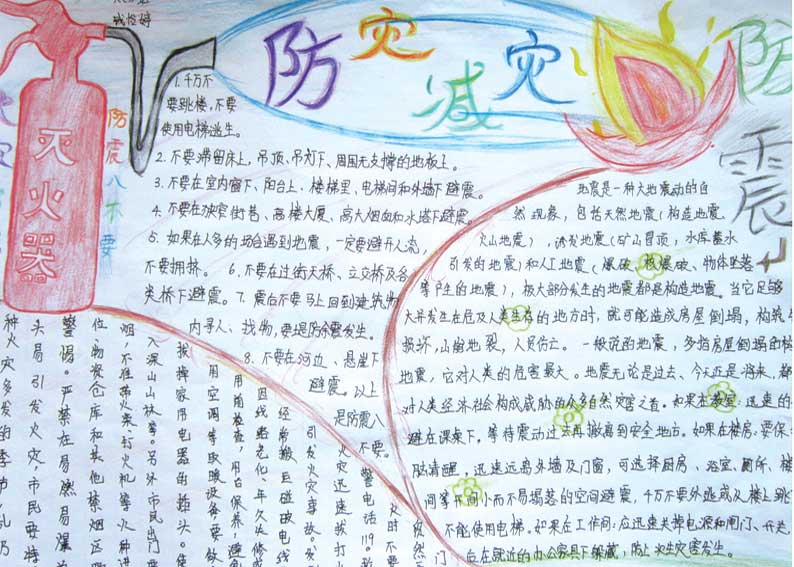 防灾减灾
防
震
灭火器
防震八不要
1.千万不
要跳楼,不要
使用电梯逃生。
2.不要滞留床上,吊顶、吊灯下、周围无支撑的地板上。
3.不要在室内窗下、阳台上、楼梯里、电梯间和外墙下避震。
4.不要在狭窄街巷、高楼大厦、高大烟囱和水塔下避震。
5.如果在人多的场合遇到地震,一定要避开人流,
不要拥挤。 6.不要在过街天桥、立交桥及各
类桥下避震。7.震后不要马上回到建筑物
内寻人、找物,要提防余震发生。
8.不要在河边、悬崖下
避震。以上
是防震八
不要。
地震是一种大地震动的自
然现象,包括天然地震(构造地震、
火山地震),诱发地震(矿山冒顶,水库蓄水
引发的地震)和人工地震(爆破、核爆破、物体坠落
等产生的地震),极大部分发生的地震都是构造地震。当它足够
大并发生在危及人类生存的地方时,就可能造成房屋倒塌,构筑
损坏,山崩地裂,人员伤亡。一般说的地震,多指房屋倒塌的
地震,它对人类的危害最大。地震无论是过去、今天还是将来,都
对人类经济社会构成威胁的众多自然灾害之首。如果在教室:迅速的
避在课桌下,等待震动过去再撤离到安全地方。如果在楼房:要保
脑清醒,迅速远离外墙及门窗,可选择厨房、浴室、厕所、楼
间等不间小而不易塌落的空间避震,千万不要外逃或从楼上跳
不能使用电梯。如果在工作间:应迅速关掉电源和闸门、开关,
后在就近的办公家具下躲藏,防止次生灾害发生。
种火灾多发的季节
头易引发火灾,市民要特
警惕。严禁在易燃易爆
位、物资仓库和其他禁烟区
烟,不准带火柴打火机等火种进
入深山山林等。另外市民出门要
拔掉家用电器的插头。使
用空调等取暖设备要
用前检查,用后保养,避免
因线路老化、年久失修
经常搬且碰破电线
引发火灾等故。发
火灾迅速拨打火
警电话119。